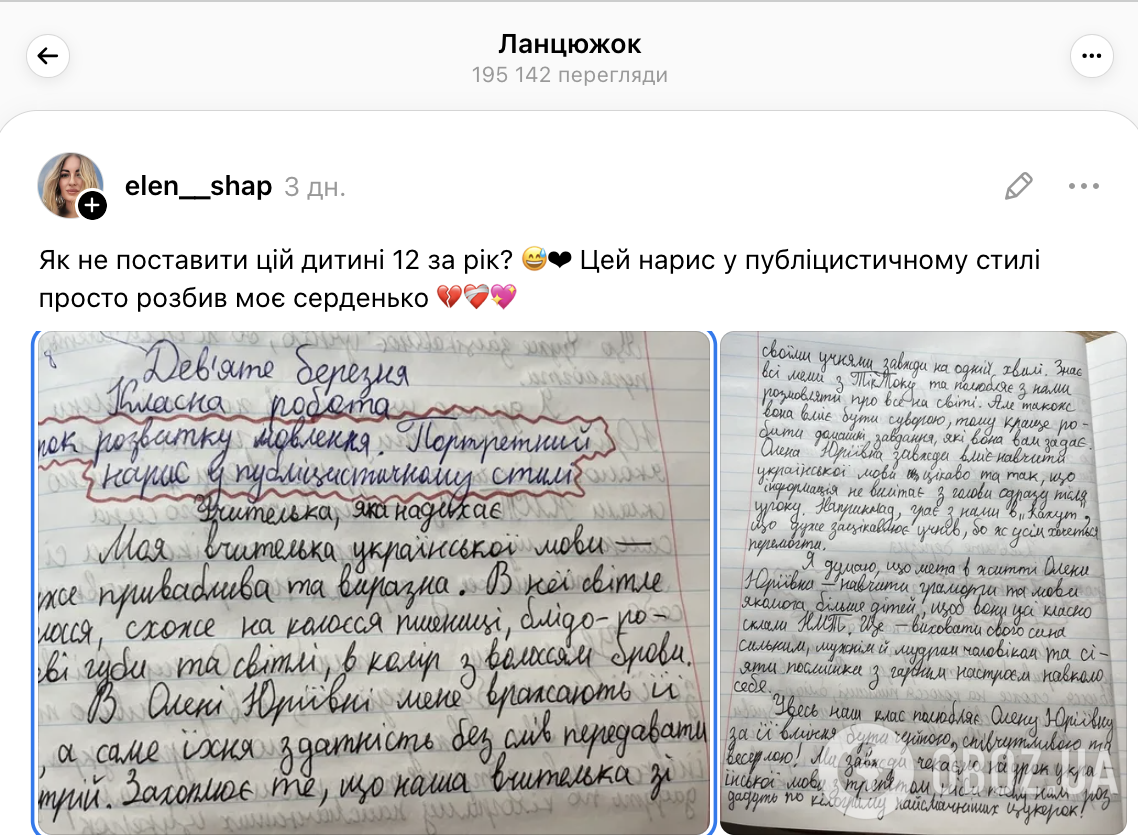 Ланцюжок
195 142 перегляди
elen__shap 3 дн.
Як не поставити цій дитині 12 за рік? 😅❤ Цей нарис у публіцистичному стилі
просто розбив моє серденько 💔❤️‍🩹💖
Дев'яте березня
Класна робота
ок розвитку мовлення. Портретний
нарис у публіцистичному стилі
Вчителька, яка надихає
Моя вчителька української мови —
же приваблива та виразна. В неї світле
лосся, схоже на колосся пшениці, блідо-ро-
еві губи та світлі, в колір з волоссям брови.
В Олені Юріївні мене вражають її
, а саме їхня здатність без слів передавати
трій. Захоплює те, що наша вчителька зі
своїми учнями завжди на одній хвилі. Знає
всі меми з ТікТоку та полюбляє з нами
розмовляти про все на світі. Але також
вона вміє бути суворою, тому краще ро-
бити домашні завдання, які вона вам задає.
Олена Юріївна завжди вміє навчити
української мови цікаво та так, що
інформація не вилітає з голови одразу після
уроку. Наприклад, грає з нами в „Кахут",
що дуже зацікавлює учнів, бо ж усім хочеться
перемогти.
Я думаю, що мета в житті Олени
Юріївни — навчити грамоти та мови
якомога більше дітей, щоб вони усі класно
склали НМТ. Ще — виховати свого сина
сильним, мужнім й мудрим чоловіком та сі-
яти посмішки з гарним настроєм навколо
себе.
Увесь наш клас полюбляє Олену Юріївну
за її вміння бути чуйною, співчутливою та
веселою! Ми завжди чекаємо на урок укра-
їнської мови з трепетом нам роз
дадуть по кілограму найсмачніших цукерок!
OBOZ.UA